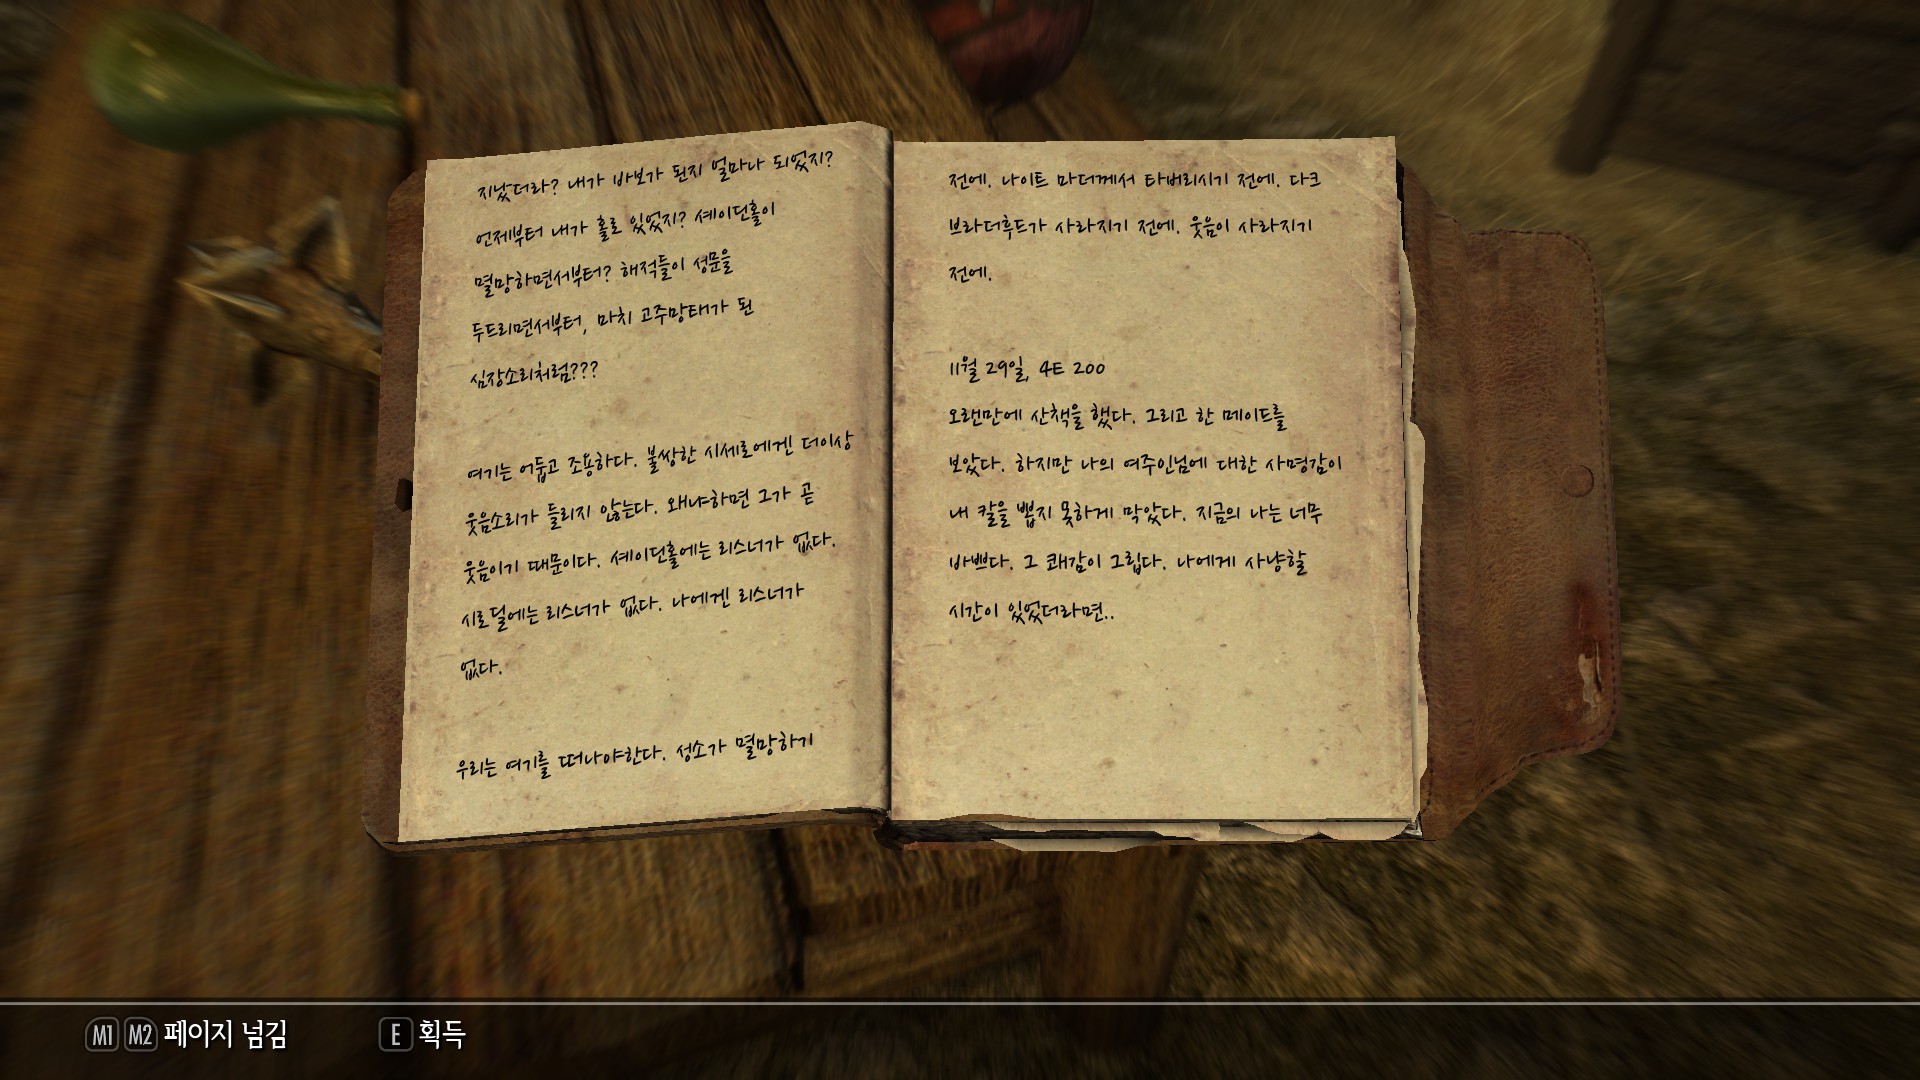 지났더라? 내가 바보가 된지 얼마나 되었지?
언제부터 내가 홀로 있었지? 셰이던홀이
멸망하면서부터? 해적들이 성문을
두드리면서부터, 마치 고주망태가 된
심장소리처럼???
여기는 어둡고 조용하다. 불쌍한 시세로에겐 더이상
웃음소리가 들리지 않는다. 왜냐하면 그가 곧
웃음이기 때문이다. 셰이던홀에는 리스너가 없다.
시로딜에는 리스너가 없다. 나에겐 리스너가
없다.
우리는 여기를 떠나야한다. 성소가 멸망하기
전에. 나이트 마더께서 타버리시기 전에. 다크
브라더후드가 사라지기 전에. 웃음이 사라지기
전에.
11월 29일, 4E 200
오랜만에 산책을 했다. 그리고 한 메이드를
보았다. 하지만 나의 여주인님에 대한 사명감이
내 칼을 뽑지 못하게 막았다. 지금의 나는 너무
바쁘다. 그 쾌감이 그립다. 나에게 사냥할
시간이 있었더라면..
M1 M2 페이지 넘김
E 획득